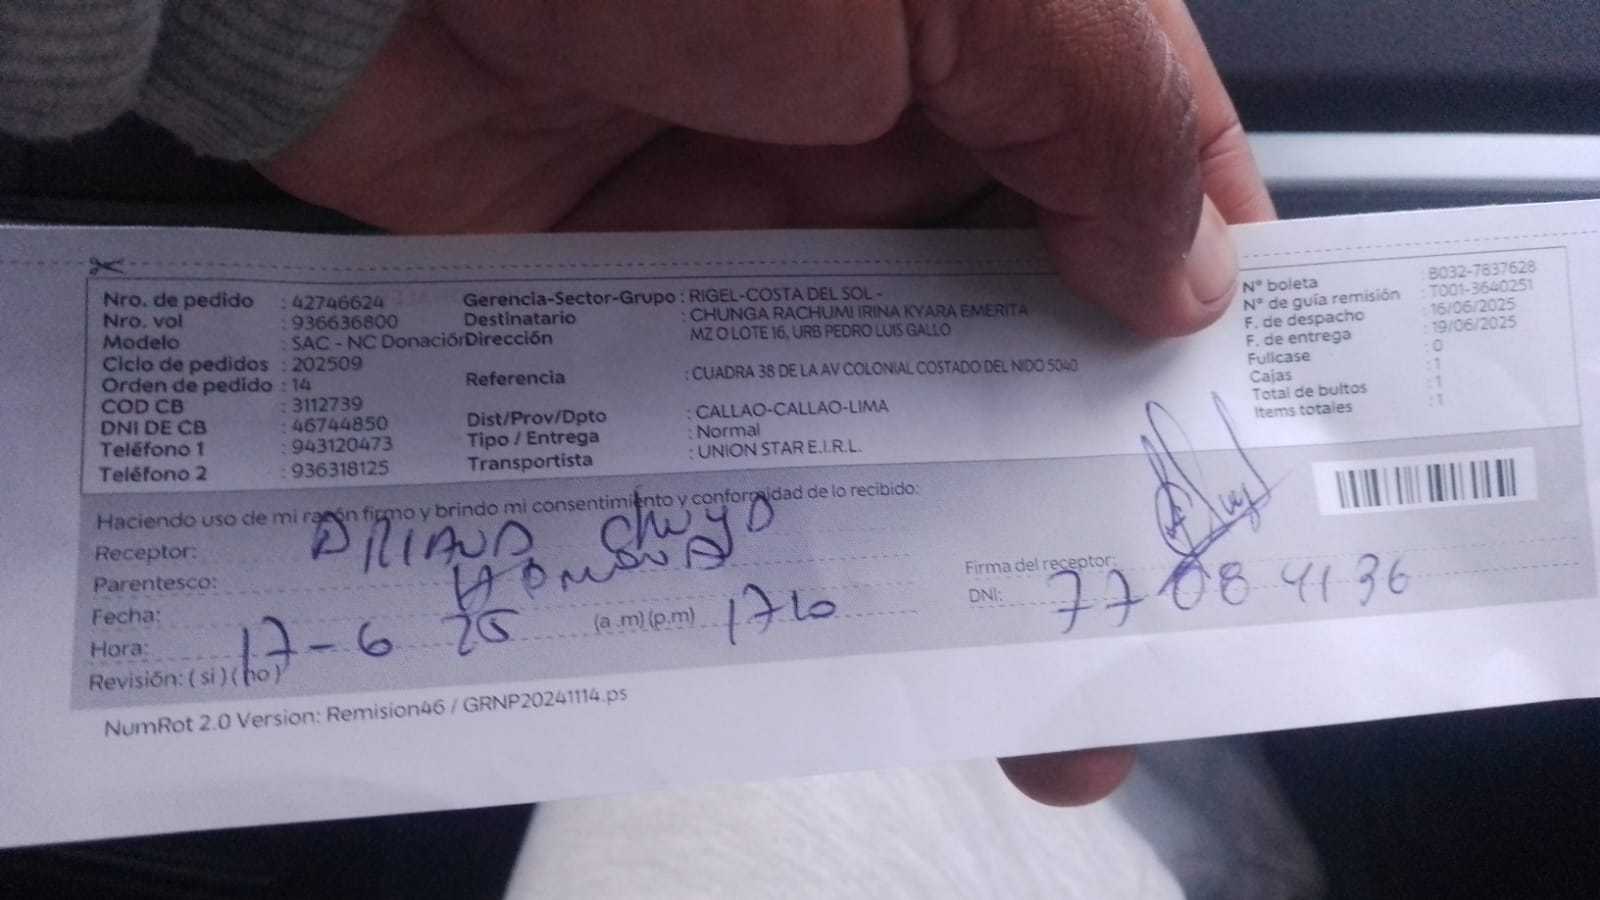 Nro. de pedido : 42746624
Nro. vol : 936636800
Modelo : SAC - NC Donación
Ciclo de pedidos : 202509
Orden de pedido : 14
COD CB : 3112739
DNI DE CB : 46744850
Teléfono 1 : 943120473
Teléfono 2 : 936318125
Gerencia-Sector-Grupo : RIGEL-COSTA DEL SOL -
Destinatario : CHUNGA RACHUMI IRINA KYARA EMERITA
Dirección MZ O LOTE 16, URB PEDRO LUIS GALLO
Referencia : CUADRA 38 DE LA AV COLONIAL COSTADO DEL NIDO 5040
Dist/Prov/Dpto : CALLAO-CALLAO-LIMA
Tipo / Entrega : Normal
Transportista : UNION STAR E.I.R.L.
N° boleta : B032-7837628
N° de guía remisión : T001-3640251
F. de despacho : 16/06/2025
F. de entrega : 19/06/2025
Fullcase : 0
Cajas : 1
Total de bultos : 1
Items totales : 1
Haciendo uso de mi razón firmo y brindo mi consentimiento y conformidad de lo recibido:
Receptor:
Parentesco:
Fecha: 17-6 25
Hora: (a .m) (p.m)
Revisión: ( si ) ( no )
Firma del receptor:
DNI: 77084136
NumRot 2.0 Version: Remision46 / GRNP20241114.ps